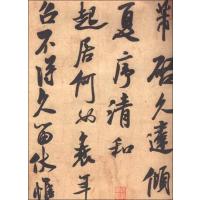 芾啓久違傾
夏序清和
起居何如衰年
召不得久留伏惟